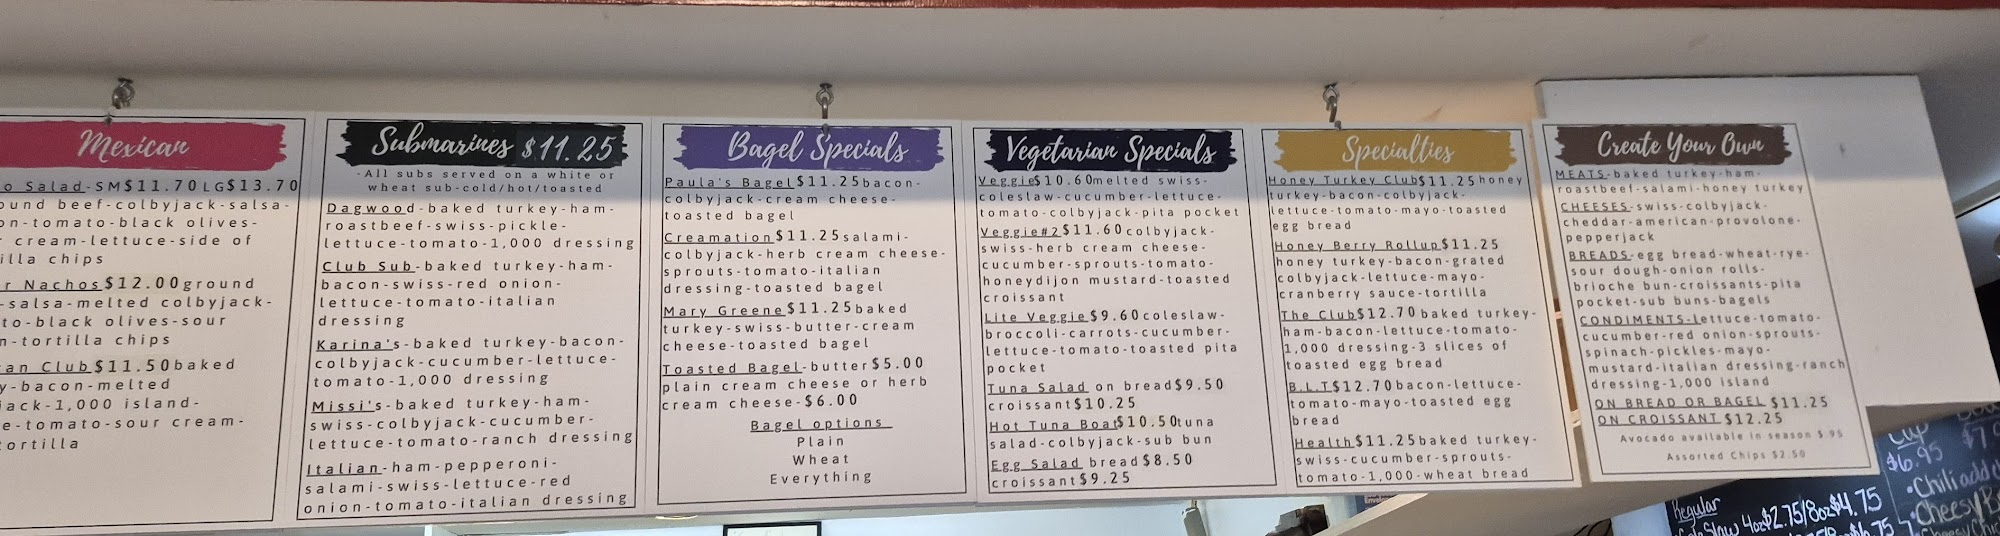 Mexican
o Salad-SM$11.70LG$13.70
ound beef-colbyjack-salsa-
on-tomato-black olives-
cream-lettuce-side of
illa chips
r Nachos$12.00ground
-salsa-melted colbyjack-
to-black olives-sour
n-tortilla chips
an Club$11.50baked
y-bacon-melted
jack-1,000 island-
e-tomato-sour cream-
ortilla
Submarines $11.25
-All subs served on a white or
wheat sub-cold/hot/toasted
Dagwood-baked turkey-ham-
roastbeef-swiss-pickle-
lettuce-tomato-1,000 dressing
Club Sub-baked turkey-ham-
bacon-swiss-red onion-
lettuce-tomato-italian
dressing
Karina's-baked turkey-bacon-
colbyjack-cucumber-lettuce-
tomato-1,000 dressing
Missi's-baked turkey-ham-
swiss-colbyjack-cucumber-
lettuce-tomato-ranch dressing
Italian-ham-pepperoni-
salami-swiss-lettuce-red
onion-tomato-italian dressing
Bagel Specials
Paula's Bagel$11.25bacon-
colbyjack-cream cheese-
toasted bagel
Creamation$11.25salami-
colbyjack-herb cream cheese-
sprouts-tomato-italian
dressing-toasted bagel
Mary Greene$11.25baked
turkey-swiss-butter-cream
cheese-toasted bagel
Toasted Bagel-butter$5.00
plain cream cheese or herb
cream cheese-$6.00
Bagel options
Plain
Wheat
Everything
Vegetarian Specials
Veggie$10.60melted swiss-
coleslaw-cucumber-lettuce-
tomato-colbyjack-pita pocket
Veggie#2$11.60colbyjack-
swiss-herb cream cheese-
cucumber-sprouts-tomato-
honeydijon mustard-toasted
croissant
Lite Veggie$9.60coleslaw-
broccoli-carrots-cucumber-
lettuce-tomato-toasted pita
pocket
Tuna Salad on bread$9.50
croissant$10.25
Hot Tuna Boat$10.50tuna
salad-colbyjack-sub bun
Egg Salad bread$8.50
croissant$9.25
Specialties
Honey Turkey Club$11.25honey
turkey-bacon-colbyjack-
lettuce-tomato-mayo-toasted
egg bread
Honey Berry Rollup$11.25
honey turkey-bacon-grated
colbyjack-lettuce-mayo-
cranberry sauce-tortilla
The Club$12.70baked turkey-
ham-bacon-lettuce-tomato-
1,000 dressing-3 slices of
toasted egg bread
B.L.T$12.70bacon-lettuce-
tomato-mayo-toasted egg
bread
Health$11.25baked turkey-
swiss-cucumber-sprouts-
tomato-1,000-wheat bread
Create Your Own
MEATS-baked turkey-ham-
roastbeef-salami-honey turkey
CHEESES-swiss-colbyjack-
cheddar-american-provolone-
pepperjack
BREADS-egg bread-wheat-rye-
sour dough-onion rolls-
brioche bun-croissants-pita
pocket-sub buns-bagels
CONDIMENTS-lettuce-tomato-
cucumber-red onion-sprouts-
spinach-pickles-mayo-
mustard-italian dressing-ranch
dressing-1,000 island
ON BREAD OR BAGEL $11.25
ON CROISSANT $12.25
Avocado available in season $.95
Assorted Chips $2.50
Cup
$6.95
Regular
Slaw 4oz$2.75/8oz$4.75
•Chili add
•Cheesy